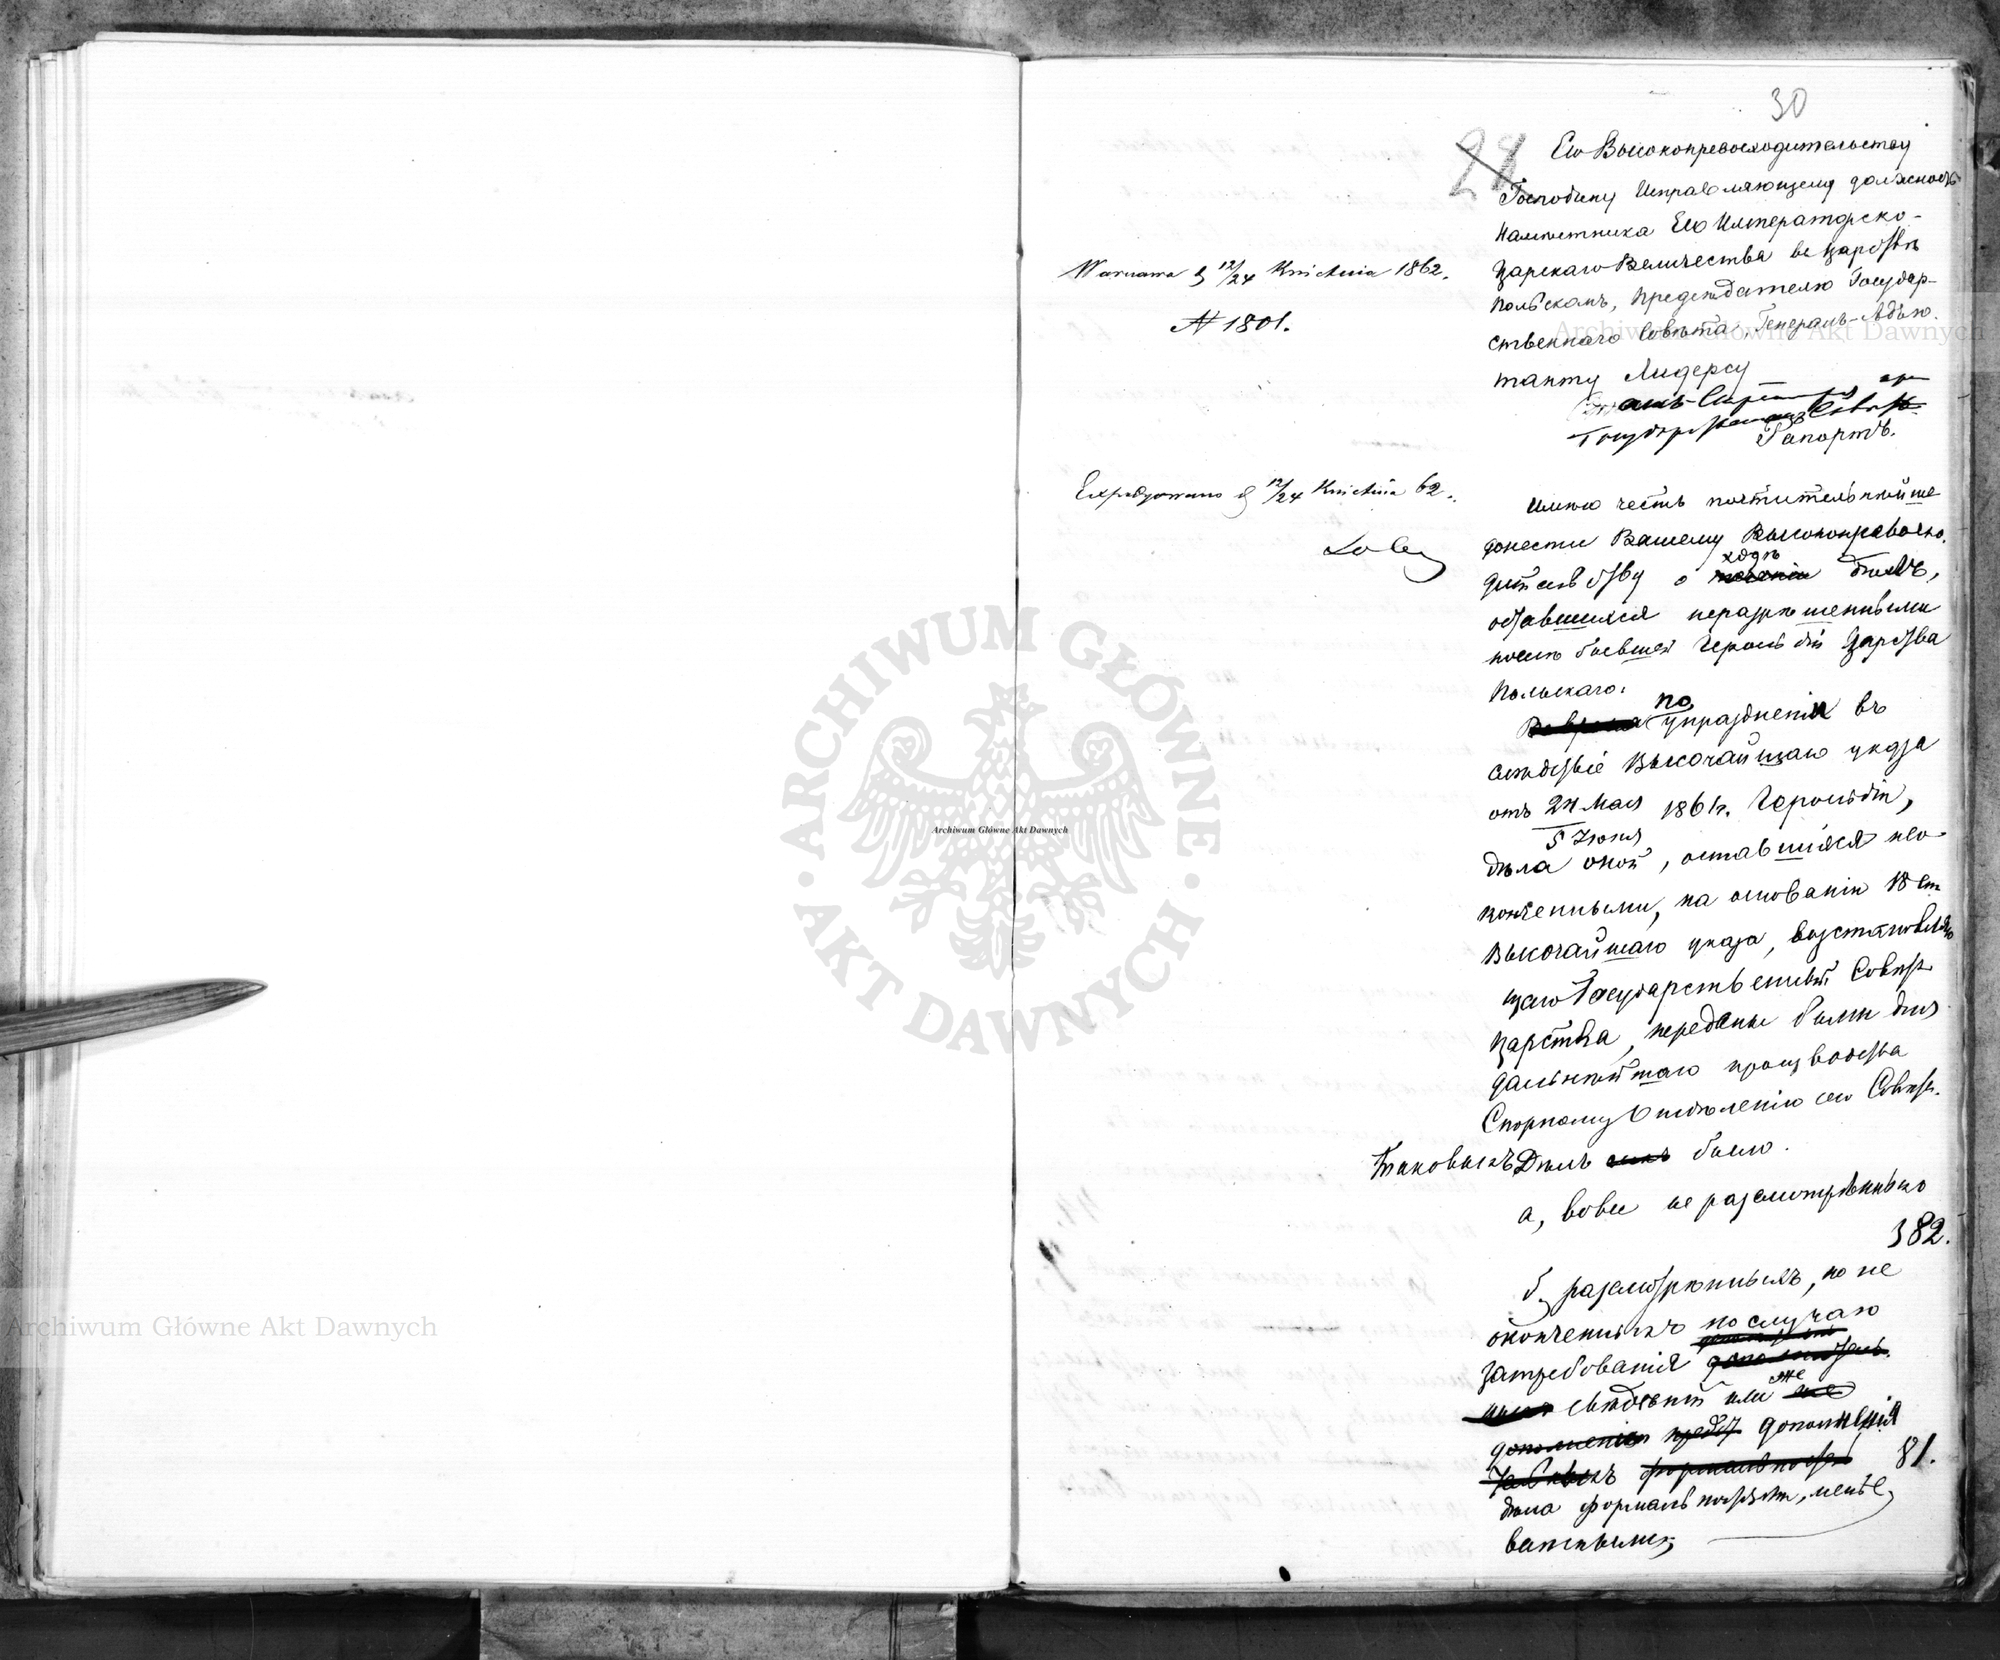 30
28
Его Высокопревосходительству
Господину Исправляющему должность
Намѣстника Его Императорско-
Царскаго Величества въ Царствѣ
Польскомъ, Предсѣдателю Государ-
ственнаго Совѣта, Генералъ-Адъю-
танту Лидерсу
Рапортъ.
Warszawa d 12/24 Kwietnia 1862.
N 1801.
Expedyowano d 12/24 Kwietnia 62.
Имѣю честь почтительнѣйше
донести Вашему Высокопревосхо-
дительству о ходѣ дѣлъ,
оставшихся неразрѣшенными
послѣ бывшей Герольдіи Царства
Польскаго.
По упраздненіи въ
слѣдствіе Высочайшаго указа
отъ 24 Мая 1861 г. Герольдіи,
5 Іюня
дѣла оной, оставшіяся нео-
конченными, на основаніи 18 ст.
Высочайшаго указа, возстановляю
щаго Государственный Совѣтъ
Царства, переданы были для
дальнѣйшаго производства
Спорному Отдѣленію сего Совѣта.
Таковыхъ Дѣлъ было.
а, вовсе не разсмотрѣнныхъ
382.
б, разсмотрѣнныхъ, но не
оконченныхъ по случаю
затребованія
свѣдѣній или же
дополненія
81.
дѣла формальностями, менѣе
важными,
Archiwum Główne Akt Dawnych
ARCHIWUM GŁÓWNE • AKT DAWNYCH •
Archiwum Główne Akt Dawnych
Archiwum Główne Akt Dawnych